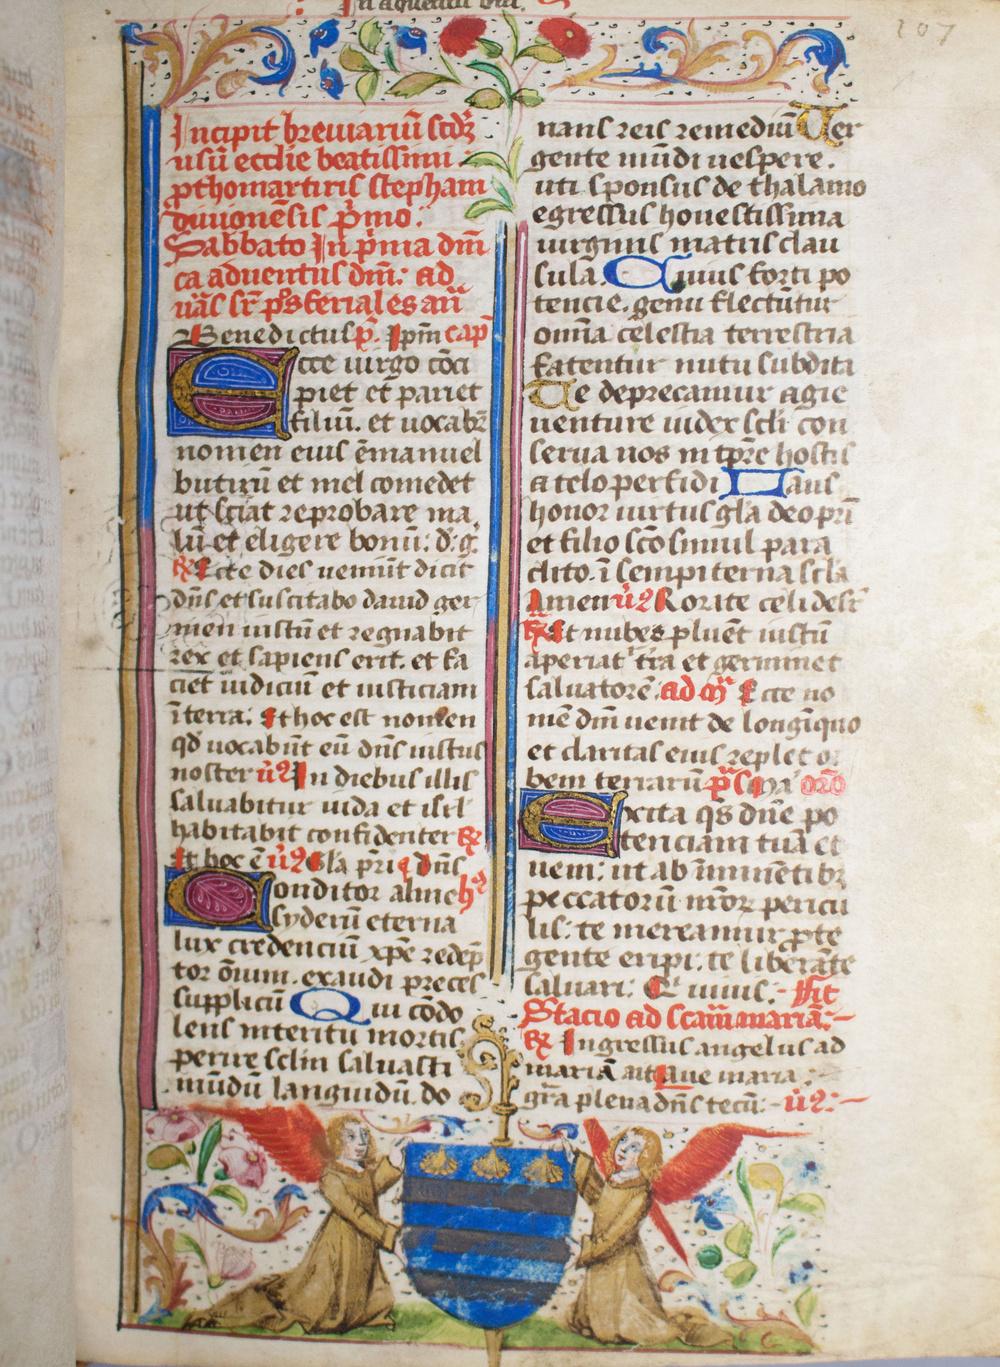 In aquentu dni.
207
Incipit breviariū scdȝ
usū ecclie beatissimi
pthomartiris stephani
diuionēsis p̄mo.
Sabbato In p̄ma dm̄
ca aduentus dm̄: ad
uās sr̄ ps̄ feriales an̄
Benedictus p̄. Ipm̄ cap̄
Ecce uirgo cōci
piet et pariet
filiū. et uocabr̄
nomen eius ēmanuel
butirū et mel comedet
ut sciat reprobare ma
lū et eligere bonū: d. g.
℟ Ecce dies ueniūt dicit
dn̄s et suscitabo dauid ger
men iustū et regnabit
rex et sapiens erit. et fa
ciet iudiciū et iusticiam
ī terra: Et hoc est nomen
qd̄ uocabūt eū dn̄s iustus
noster ūȝ In diebus illis
saluabitur iuda et isrl
habitabit confidenter ℟
Et hoc ē ūȝ Gla pri dn̄s
Conditor alme hȳ
syderū eterna
lux credenciū xp̄e redēp
tor ōium. exaudi preces
suppliciū Qui cōdo
lens interitu mortis
perire sclm saluasti
mūdū languidū. do
nans reis remediū Ver
gente mūdi uespere.
uti sponsus de thalamo
egressus honestissima
uirginis matris clau
sula. Cuius forti po
tencie. genu flectūtur
omnia celestia terrestria
fatentur nutu subdita
Te deprecamur agie
uenture iudex scli con
serua nos in tp̄re hostis
a telo perfidi Laus
honor uirtus gl̄a deo pri
et filio sc̄o simul para
clito. ī sempiterna scl̄a
Amen ūȝ Rorate celi desr̄
℟ Et nubes pluēt iustū
aperiat' tr̄a et germinet
saluatorē. ad m̄ Ecce no
mē dm̄ uenit de longīquo
et claritas eius replet or
bem terrarū p̄s Ma' or̄o
Excita qs̄ dn̄e po
tenciam tuā et
ueni: ut ab īminētibȝ
peccatorū nr̄oȝ pericu
lis: te mereamur prote
gente eripi. te liberāte
saluari: Q uiuis. Fit
Stacio ad scām mariā:
℟ Ingressus angelus ad
mariā ait Aue maria:
gr̄a plena dn̄s tecū: ūȝ: